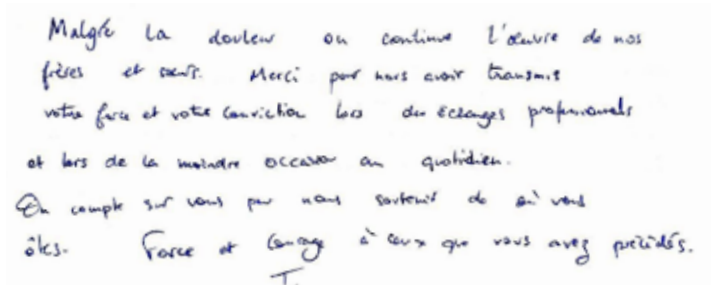 Malgré la douleur on continue l'œuvre de nos
frères et sœurs. Merci pour nous avoir transmis
votre force et votre conviction lors des échanges professionnels
et lors de la moindre occasion au quotidien.
On compte sur vous pour nous soutenir de où vous
êtes. Force et Courage à ceux que vous avez précédés.